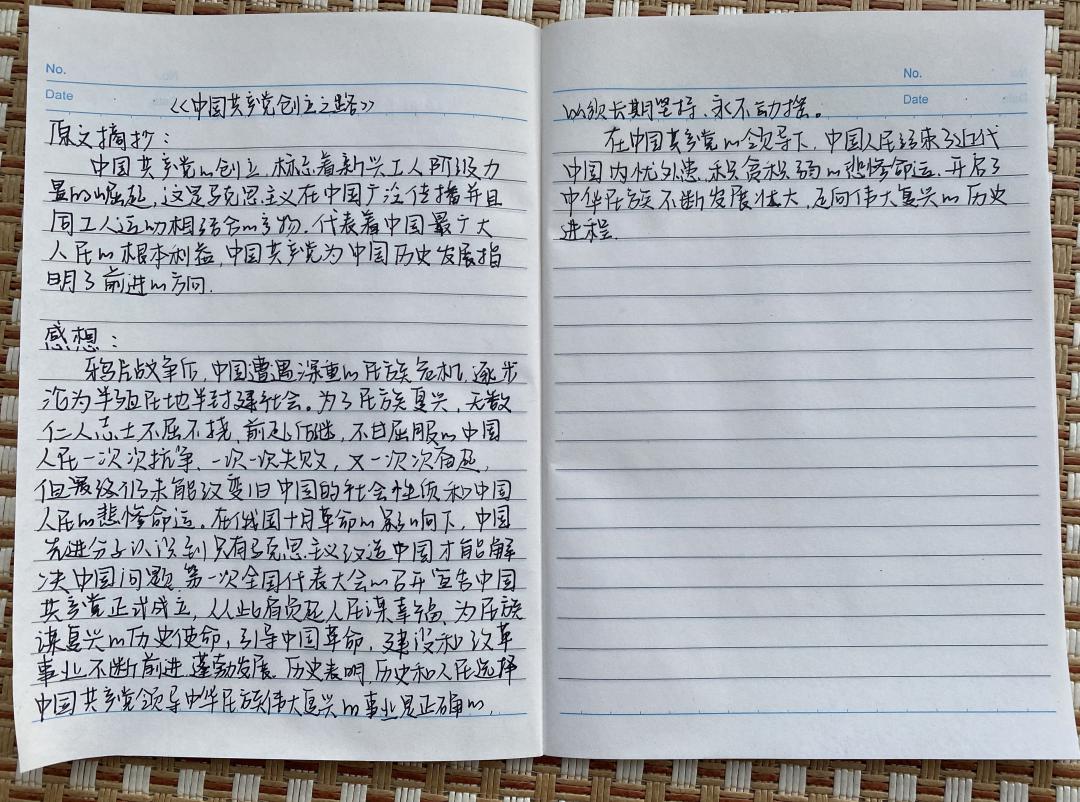 No.
Date
《中国共产党创立之路》
原文摘抄：
中国共产党的创立，标志着新兴工人阶级力
量的崛起，这是马克思主义在中国广泛传播并且
同工人运动相结合的产物。代表着中国最广大
人民的根本利益，中国共产党为中国历史发展指
明了前进的方向.
感想：
鸦片战争后，中国遭遇深重的民族危机，逐步
沦为半殖民地半封建社会。为了民族复兴，无数
仁人志士不屈不挠、前赴后继，不甘屈服的中国
人民一次次抗争、一次一次失败，又一次次奋起，
但最终仍未能改变旧中国的社会性质和中国
人民的悲惨命运。在俄国十月革命的影响下，中国
先进分子认识到只有马克思主义改造中国才能解
决中国问题.第一次全国代表大会的召开宣告中国
共产党正式成立，从此肩负起人民谋幸福、为民族
谋复兴的历史使命，引导中国革命，建设和改革
事业不断前进.蓬勃发展.历史表明，历史和人民选择
中国共产党领导中华民族伟大复兴的事业是正确的，
No.
Date
必须长期坚持、永不动摇。
在中国共产党的领导下，中国人民结束了近代
中国内忧外患、积贫积弱的悲惨命运.开启了
中华民族不断发展壮大，走向伟大复兴的历史
进程.